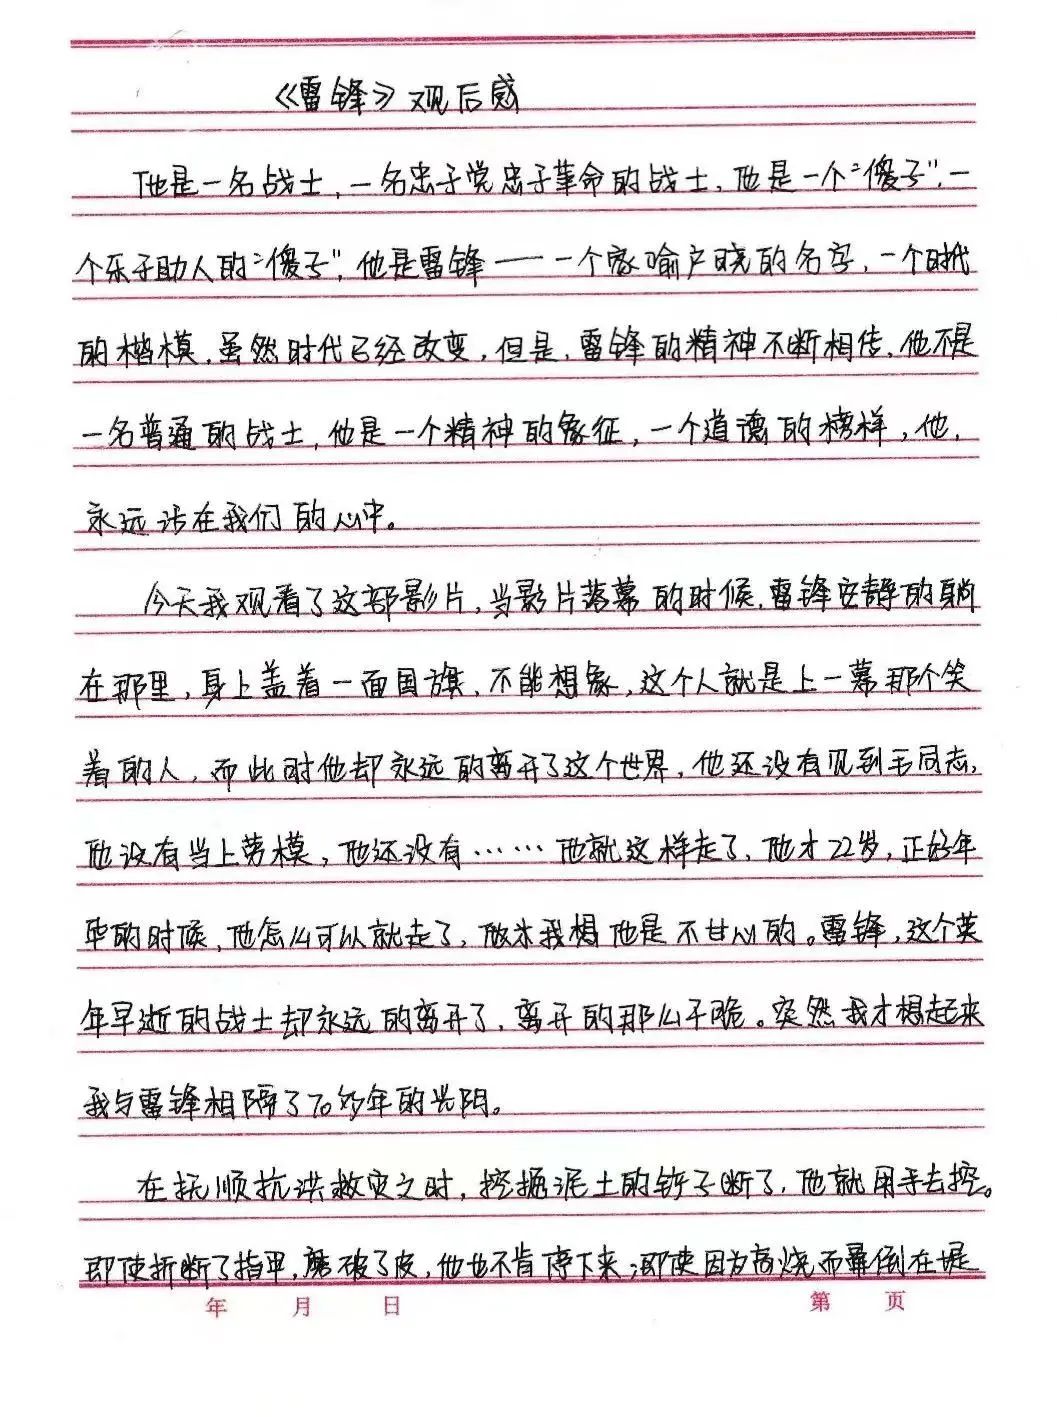 《雷锋》观后感
他是一名战士,一名忠于党忠于革命的战士,他是一个“傻子”,一
个乐于助人的“傻子”,他是雷锋——一个家喻户晓的名字,一个时代
的楷模,虽然时代已经改变,但是,雷锋的精神不断相传,他不是
一名普通的战士,他是一个精神的象征,一个道德的榜样,他,
永远活在我们的心中。
今天我观看了这部影片,当影片落幕的时候,雷锋安静的躺
在那里,身上盖着一面国旗,不能想象,这个人就是上一幕那个笑
着的人,而此时他却永远的离开了这个世界,他还没有见到毛同志,
他没有当上劳模,他还没有……他就这样走了,他才22岁,正好年
华的时候,他怎么可以就走了,做来我想他是不甘心的。雷锋,这个英
年早逝的战士却永远的离开了,离开的那么干脆。突然我才想起来
我与雷锋相隔了70多年的光阴。
在抚顺抗洪救灾之时,挖掘泥土的铲子断了,他就用手去挖。
即使折断了指甲,磨破了皮,他也不肯停下来;即使因为高烧而晕倒在堤
年 月 日 第 页